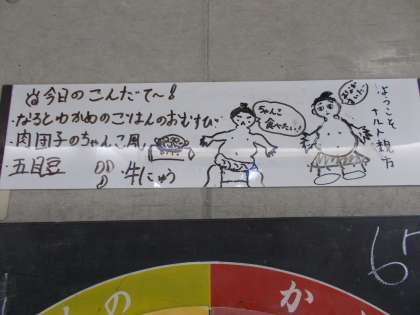 今日のこんだて〜!
・なるとわかめのごはんのおむすび
・肉団子のちゃんこ風
・五目豆
・牛にゅう
ちゃんこ
食べたい!
ようこそ
ナルト親方
の
か
6